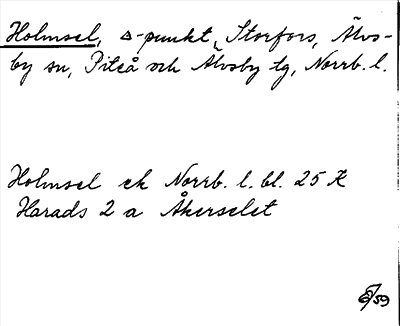 Holmsel, △-punkt, Storfors, Älvs-
by sn, Piteå och Älvsby tg, Norrb. l.
Holmsel ek Norrb. l. bl. 25 K
Harads 2 a Åkerselet
/59